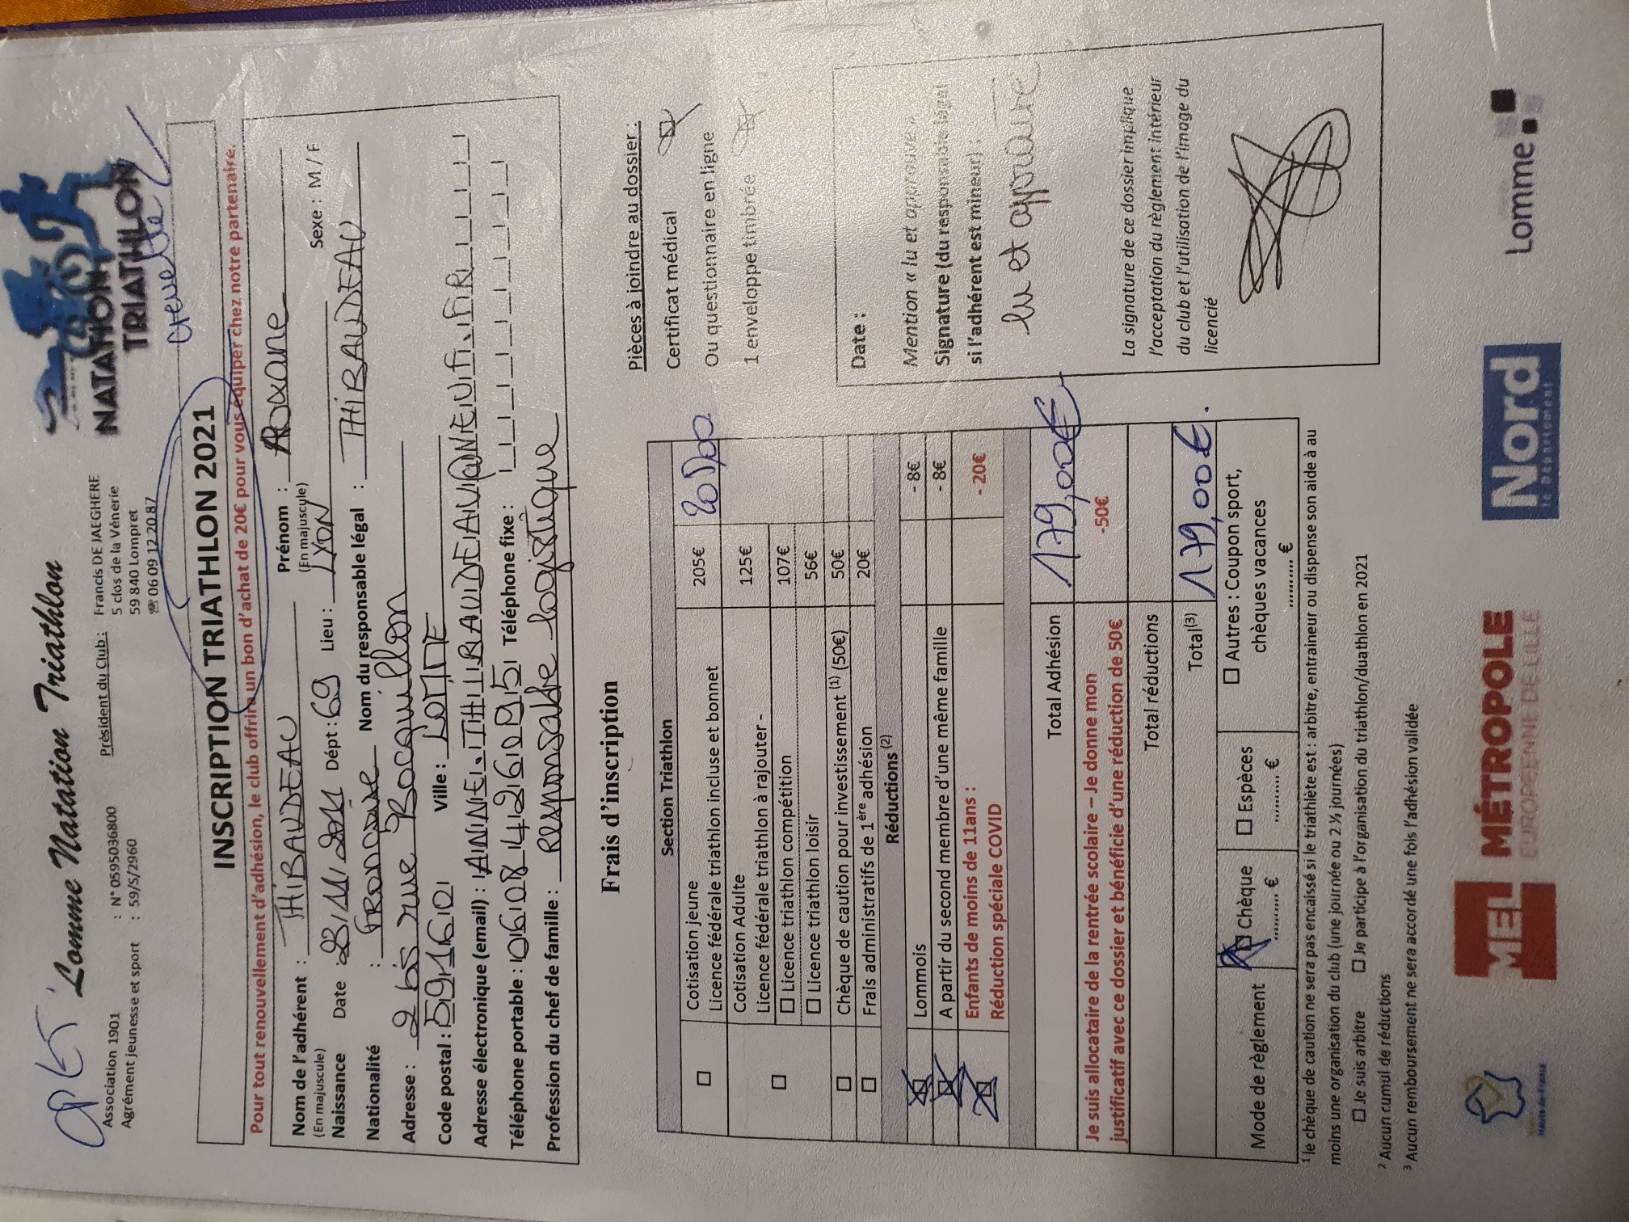 OPE
Lomme Natation Triathlon
NATATHLON
TRIATHLON
Association 1901 : N° 059S036800
Agrément jeunesse et sport : 59/S/2960
Président du Club : Francis DE JAEGHERE
5 clos de la Vènerie
59 840 Lompret
☏ 06 09 12 20 87
INSCRIPTION TRIATHLON 2021
Pour tout renouvellement d'adhésion, le club offrira un bon d'achat de 20€ pour vous équiper chez notre partenaire.
Nom de l'adhérent : THIBAUDEAU Prénom : Roxane
(En majuscule) (En majuscule)
Naissance Date 23/11/2011 Dépt : 69 Lieu : Lyon Sexe : M / F
Nationalité : Française Nom du responsable légal : THIBAUDEAU
Adresse : 2 bis rue Bocquillon
Code postal : 59160 Ville : LOMME
Adresse électronique (email) :
Téléphone portable : 0608426095 Téléphone fixe :
Profession du chef de famille : responsable logistique
Frais d'inscription
Section Triathlon
☐ Cotisation jeune 205€
Licence fédérale triathlon incluse et bonnet
☐ Cotisation Adulte 125€
Licence fédérale triathlon à rajouter -
☐ Licence triathlon compétition 107€
☐ Licence triathlon loisir 56€
☐ Chèque de caution pour investissement (1) (50€) 50€
☐ Frais administratifs de 1ère adhésion 20€
Réductions (2)
☒ Lommois - 8€
☒ A partir du second membre d'une même famille - 8€
☒ Enfants de moins de 11ans : - 20€
Réduction spéciale COVID
Total Adhésion 179,00€
Je suis allocataire de la rentrée scolaire – Je donne mon -50€
justificatif avec ce dossier et bénéficie d'une réduction de 50€
Total réductions
Total(3) 179,00€
Mode de règlement ☒ Chèque ☐ Espèces ☐ Autres : Coupon sport,
chèques vacances
.......... € .......... € .......... €
Pièces à joindre au dossier :
Certificat médical ☒
Ou questionnaire en ligne
1 enveloppe timbrée ☒
Date :
Mention « lu et approuvé »
Signature (du responsable légal
si l'adhérent est mineur) :
lu et approuvé
La signature de ce dossier implique
l'acceptation du règlement intérieur
du club et l'utilisation de l'image du
licencié
1 le chèque de caution ne sera pas encaissé si le triathlète est : arbitre, entraineur ou dispense son aide à au
moins une organisation du club (une journée ou 2 ½ journées)
☐ Je suis arbitre ☐ Je participe à l'organisation du triathlon/duathlon en 2021
2 Aucun cumul de réductions
3 Aucun remboursement ne sera accordé une fois l'adhésion validée
Hauts-de-France
MEL
MÉTROPOLE
EUROPÉENNE DE LILLE
Nord
le Département
Lomme